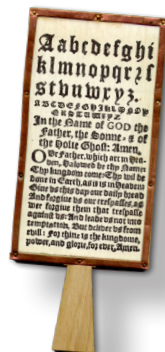 Aabcdefghi
klmnopqrſs
stuvwxyz.
In the Name of GOD the
Father, the Sonne, & of
the Holie Ghost: Amen.
OUr Father, which art in Hea-
ven, Halowed be thy Name:
Thy kingdom come: Thy wil be
done in Earth, as it is in Heaven:
Give us this day our daily bread
And forgive us our trespasses, as
wee forgive them that trespasse
against us: And leade us not into
temptation. But deliver us from
evill: For thine is the kingdome,
power, and glorie, for ever, Amen.